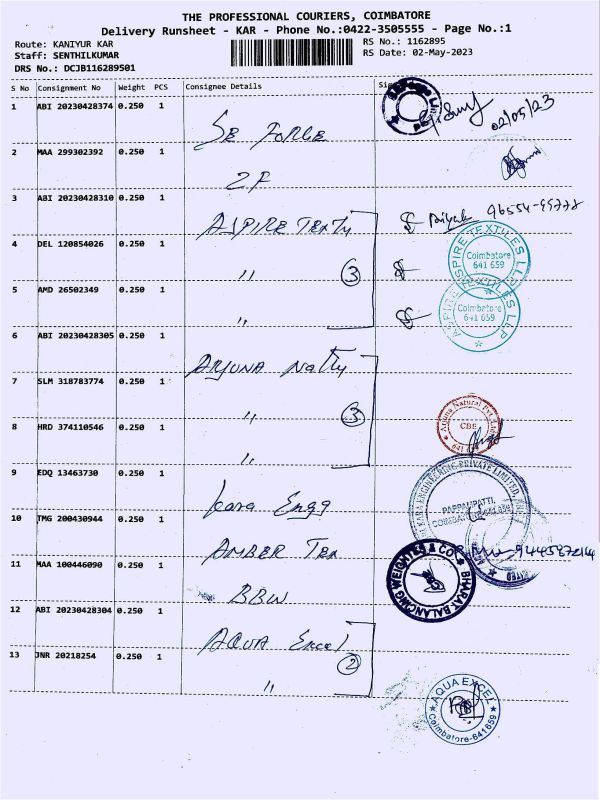 THE PROFESSIONAL COURIERS, COIMBATORE
Delivery Runsheet - KAR - Phone No.:0422-3505555 - Page No.:1
Route: KANIYUR KAR
Staff: SENTHILKUMAR
DRS No.: DCJB116289501
RS No.: 1162895
RS Date: 02-May-2023
S No Consignment No Weight PCS Consignee Details
1 ABI 20230428374 0.250 1 SE FORGE 02/05/23
2 MAA 299302392 0.250 1 ZF
3 ABI 20230428310 0.250 1 ASPIRE Texty
4 DEL 120854026 0.250 1 " 3
5 AMD 26502349 0.250 1 "
6 ABI 20230428305 0.250 1 ARJUNA Natty
7 SLM 318783774 0.250 1 " 3
8 HRD 374110546 0.250 1 "
9 EDQ 13463730 0.250 1 Kara Engg
10 TMG 200430944 0.250 1 AMBER Tex
11 MAA 100446090 0.250 1 BBW
12 ABI 20230428304 0.250 1 AQUA Excel
13 JNR 20218254 0.250 1 " 2
ASPIRE TEXTILES LLP
Coimbatore
641 659
ASPIRE TEXTILES LLP
Coimbatore
641 659
Arjuna Natural Pvt. Ltd
CBE
ENGINEERING PRIVATE LIMITED
PAPPAMPATTI,
BHARAT BALANCING WEIGHTES & CO
AQUA EXCEL
Coimbatore-641659